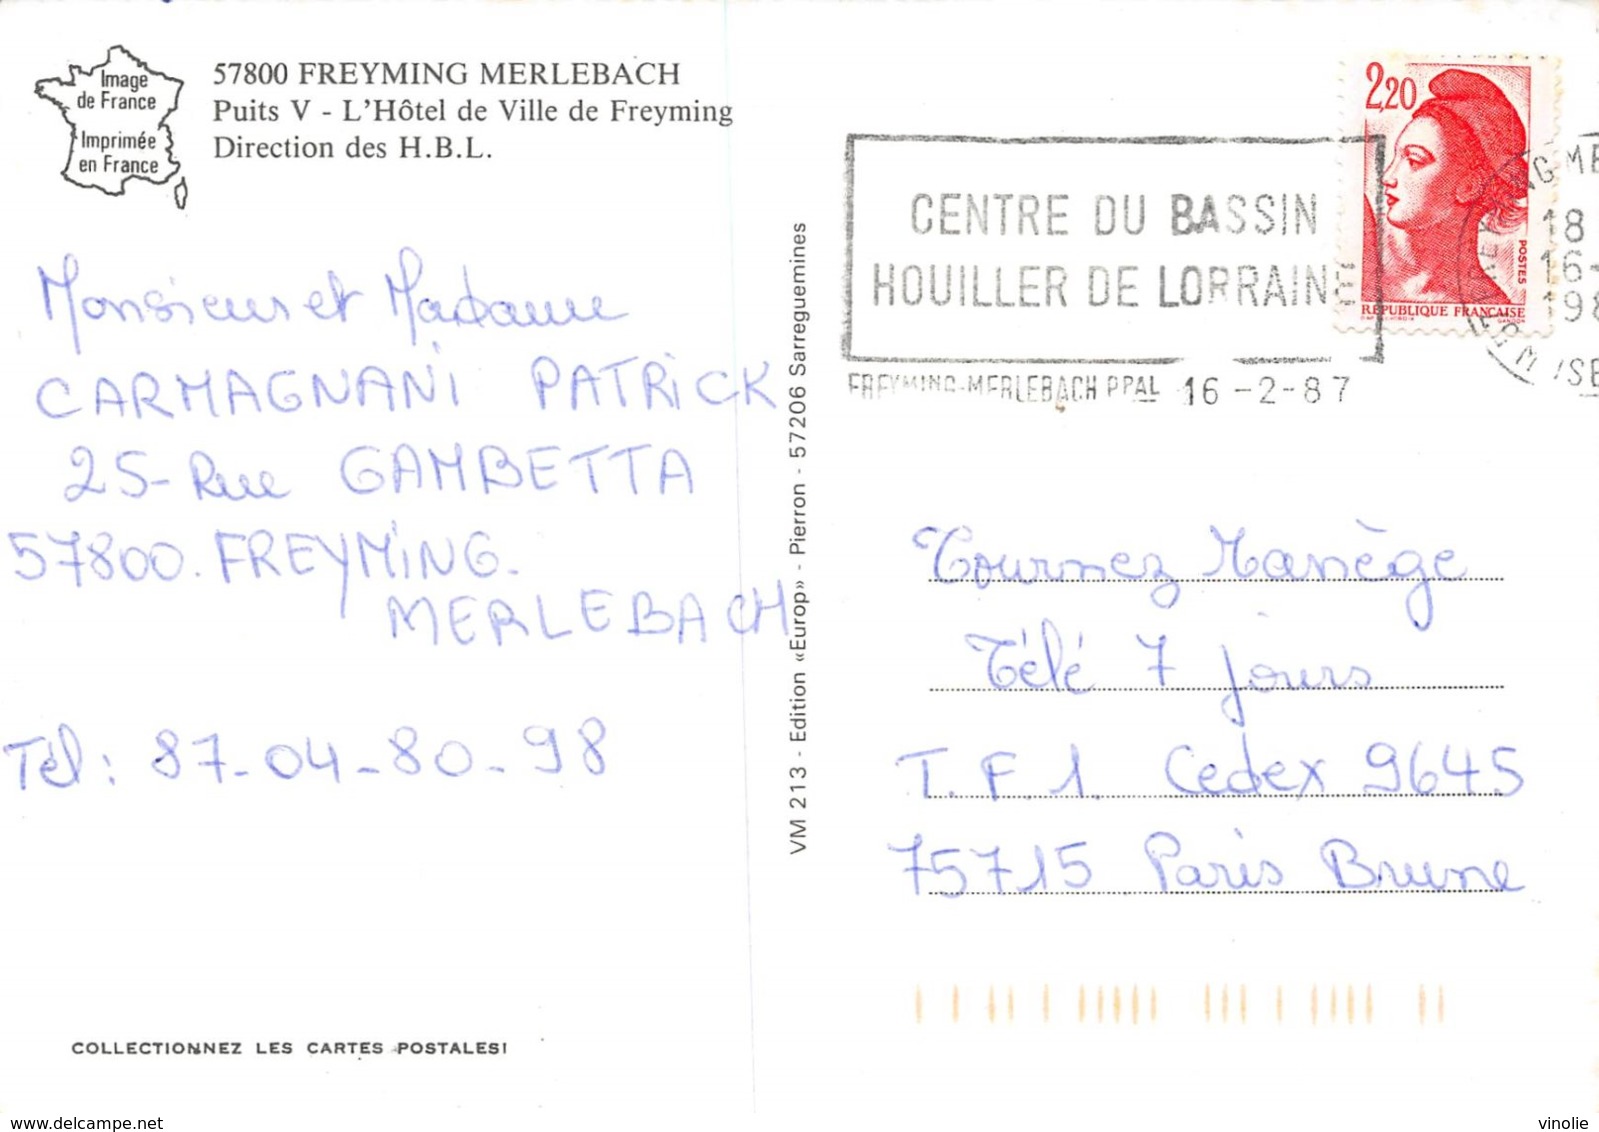 Image
de France
Imprimée
en France
57800 FREYMING MERLEBACH
Puits V - L'Hôtel de Ville de Freyming
Direction des H.B.L.
Monsieur et Madame
CARMAGNANI PATRICK
25-Rue GAMBETTA
57800. FREYMING.
MERLEBACH
Tél: 87-04-80-98
COLLECTIONNEZ LES CARTES POSTALES!
VM 213 - Edition «Europ» - Pierron - 57206 Sarreguemines
CENTRE DU BASSIN
HOUILLER DE LORRAINE
FREYMING-MERLEBACH PPAL 16-2-87
2,20
POSTES
REPUBLIQUE FRANÇAISE
GANDON
18
16-
198
Tournez Manège
Télé 7 jours
T.F.1. Cedex 9645
75715 Paris Brune
www.delcampe.net
vinolie